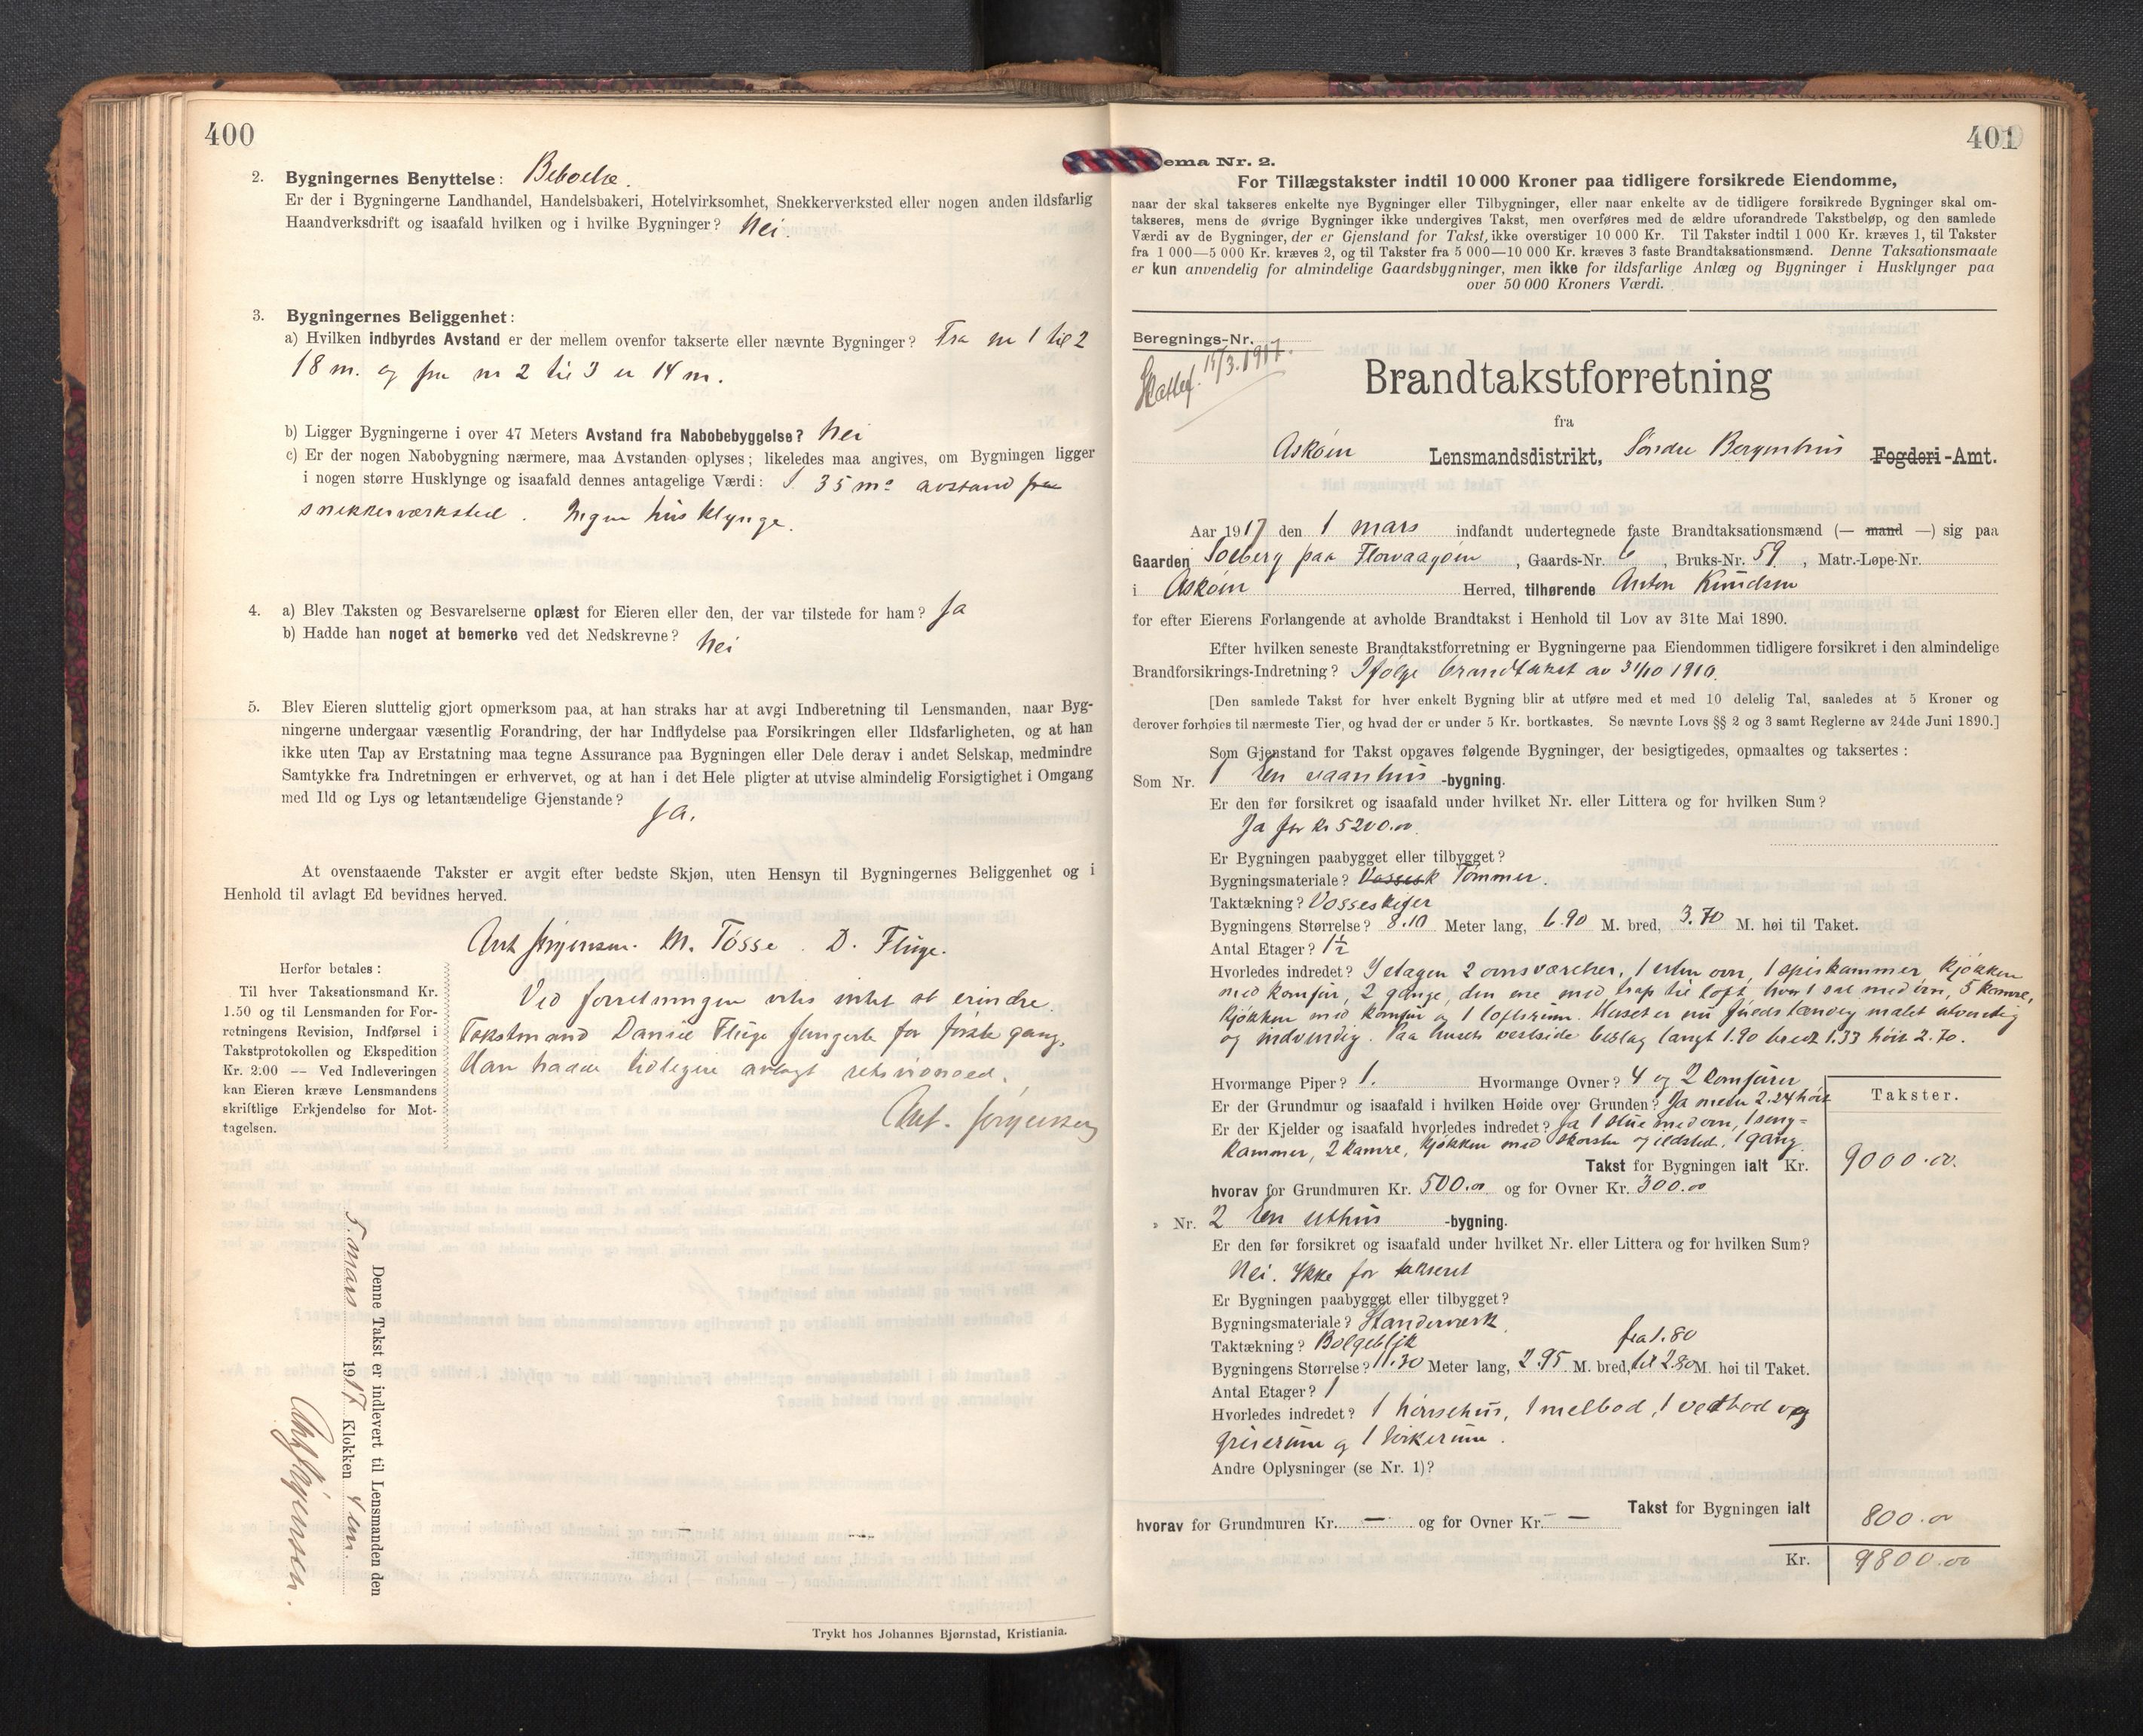 400
2. Bygningernes Benyttelse: Beboelse.
Er der i Bygningerne Landhandel, Handelsbakeri, Hotelvirksomhet, Snekkerverksted eller nogen anden ildsfarlig
Haandverksdrift og isaafald hvilken og i hvilke Bygninger? Nei.
3. Bygningernes Beliggenhet:
a) Hvilken indbyrdes Avstand er der mellem ovenfor takserte eller nævnte Bygninger? Fra nr 1 til 2
18 m. og fra nr 2 til 3 er 14 m.
b) Ligger Bygningerne i over 47 Meters Avstand fra Nabobebyggelse? Nei
c) Er der nogen Nabobygning nærmere, maa Avstanden oplyses; likeledes maa angives, om Bygningen ligger
i nogen større Husklynge og isaafald dennes antagelige Værdi: I 35 ms avstand fra
snekkerværksted. Ingen husklynge.
4. a) Blev Taksten og Besvarelserne oplæst for Eieren eller den, der var tilstede for ham? Ja
b) Hadde han noget at bemerke ved det Nedskrevne? Nei
5. Blev Eieren sluttelig gjort opmerksom paa, at han straks har at avgi Indberetning til Lensmanden, naar Byg-
ningerne undergaar væsentlig Forandring, der har Indflydelse paa Forsikringen eller Ildsfarligheten, og at han
ikke uten Tap av Erstatning maa tegne Assurance paa Bygningen eller Dele derav i andet Selskap, medmindre
Samtykke fra Indretningen er erhvervet, og at han i det Hele pligter at utvise almindelig Forsigtighet i Omgang
med Ild og Lys og letantændelige Gjenstande?
Ja.
At ovenstaaende Takster er avgit efter bedste Skjøn, uten Hensyn til Bygningernes Beliggenhet og i
Henhold til avlagt Ed bevidnes herved.
Ant Jørgensen. M. Tösse. D. Fluge.
Herfor betales:
Til hver Taksationsmand Kr.
1.50 og til Lensmanden for For-
retningens Revision, Indførsel i
Takstprotokollen og Ekspedition
Kr. 2.00 — Ved Indleveringen
kan Eieren kræve Lensmandens
skriftlige Erkjendelse for Mot-
tagelsen.
Ved forretningen vites intet at erindre.
Takstmand Daniel Fluge fungerte for første gang.
Han hadde tidligere avlagt
Ant. Jørgensen
Denne Takst er indlevert til Lensmanden den
5 mars 1917 Klokken 4 em.
Ant Jørgensen.
Trykt hos Johannes Bjørnstad, Kristiania.
401
ema Nr. 2.
For Tillægstakster indtil 10 000 Kroner paa tidligere forsikrede Eiendomme,
naar der skal takseres enkelte nye Bygninger eller Tilbygninger, eller naar enkelte av de tidligere forsikrede Bygninger skal om-
takseres, mens de øvrige Bygninger ikke undergives Takst, men overføres med de ældre uforandrede Takstbeløp, og den samlede
Værdi av de Bygninger, der er Gjenstand for Takst, ikke overstiger 10 000 Kr. Til Takster indtil 1 000 Kr. kræves 1, til Takster
fra 1 000—5 000 Kr. kræves 2, og til Takster fra 5 000—10 000 Kr. kræves 3 faste Brandtaksationsmænd. Denne Taksationsmaate
er kun anvendelig for almindelige Gaardsbygninger, men ikke for ildsfarlige Anlæg og Bygninger i Husklynger paa
over 50 000 Kroners Værdi.
Beregnings-Nr.
15/3.1917.
Brandtakstforretning
fra
Askøen Lensmandsdistrikt, Søndre Bergenhus Fogderi-Amt.
Aar 1917 den 1 mars indfandt undertegnede faste Brandtaksationsmænd (— mand —) sig paa
Gaarden Solberg paa Florvaagøen, Gaards-Nr. 6, Bruks-Nr. 59, Matr.-Løpe-Nr.
i Askøen Herred, tilhørende Anton Knudsen
for efter Eierens Forlangende at avholde Brandtakst i Henhold til Lov av 31te Mai 1890.
Efter hvilken seneste Brandtakstforretning er Bygningerne paa Eiendommen tidligere forsikret i den almindelige
Brandforsikrings-Indretning? Ifølge brandtakst av 31/10 1910.
[Den samlede Takst for hver enkelt Bygning blir at utføre med et med 10 delelig Tal, saaledes at 5 Kroner og
derover forhøies til nærmeste Tier, og hvad der er under 5 Kr. bortkastes. Se nævnte Lovs §§ 2 og 3 samt Reglerne av 24de Juni 1890.]
Som Gjenstand for Takst opgaves følgende Bygninger, der besigtigedes, opmaaltes og taksertes:
Som Nr. 1 En vaanhus -bygning.
Er den før forsikret og isaafald under hvilket Nr. eller Littera og for hvilken Sum?
Ja for kr 5200.00
Er Bygningen paabygget eller tilbygget?
Bygningsmateriale? Tömmer.
Taktækning? Vosseskifer
Bygningens Størrelse? 8.10 Meter lang, 6.90 M. bred, 3.70 M. høi til Taket.
Antal Etager? 1½
Hvorledes indredet? I etagen 2 ovnsværelser, 1 uten ovn, 1 spiskammer, kjøkken
med komfur, 2 gange, den ene med trap til loft, hvor 1 sal med ovn, 5 kamre,
kjøkken med komfur og 1 loftsrum. Huset er nu fuldstændig malet utvendig
og indvendig. Paa husets vestside beslag langt 1.90 bredt 1.33 høit 2.70.
Hvormange Piper? 1. Hvormange Ovner? 4 og 2 komfurer
Er der Grundmur og isaafald i hvilken Høide over Grunden? Ja 2.24 høit
Er der Kjelder og isaafald hvorledes indredet? Ja 1 stue med ovn, 1 seng=
kammer, 2 kamre, kjøkken med skorsten og ildsted, 1 gang.
Takster.
Takst for Bygningen ialt Kr. 9000.00.
hvorav for Grundmuren Kr. 500.00 og for Ovner Kr. 300.00
» Nr. 2 En uthus -bygning.
Er den før forsikret og isaafald under hvilket Nr. eller Littera og for hvilken Sum?
Nei. Ikke før takseret
Er Bygningen paabygget eller tilbygget?
Bygningsmateriale? Standerværk
Taktækning? Bølgeblik fra 1.80
Bygningens Størrelse? 11.30 Meter lang, 2.95 M. bred, til 2.80 M. høi til Taket.
Antal Etager? 1
Hvorledes indredet? 1 hønsehus, 1 melbod, 1 vedbod og
griserum og 1 rum.
Andre Oplysninger (se Nr. 1)?
Takst for Bygningen ialt 800.00
hvorav for Grundmuren Kr. — og for Ovner Kr. —
Kr. 9800.00